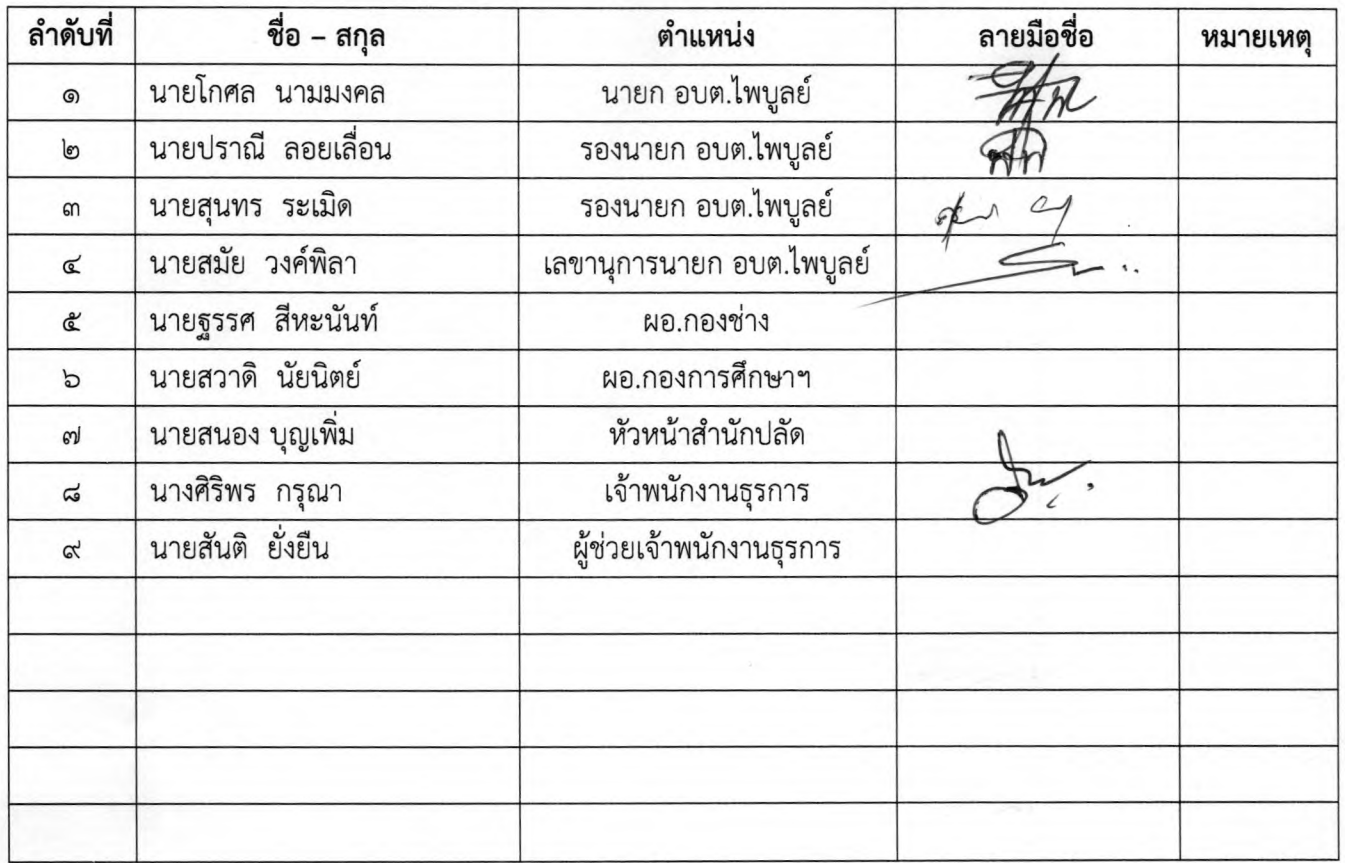 ลำดับที่ ชื่อ – สกุล ตำแหน่ง ลายมือชื่อ หมายเหตุ
๑ นายโกศล นามมงคล นายก อบต.ไพบูลย์
๒ นายปราณี ลอยเลื่อน รองนายก อบต.ไพบูลย์
๓ นายสุนทร ระเมิด รองนายก อบต.ไพบูลย์
๔ นายสมัย วงค์พิลา เลขานุการนายก อบต.ไพบูลย์
๕ นายฐรรศ สีหะนันท์ ผอ.กองช่าง
๖ นายสวาดิ นัยนิตย์ ผอ.กองการศึกษาฯ
๗ นายสนอง บุญเพิ่ม หัวหน้าสำนักปลัด
๘ นางศิริพร กรุณา เจ้าพนักงานธุรการ
๙ นายสันติ ยั่งยืน ผู้ช่วยเจ้าพนักงานธุรการ